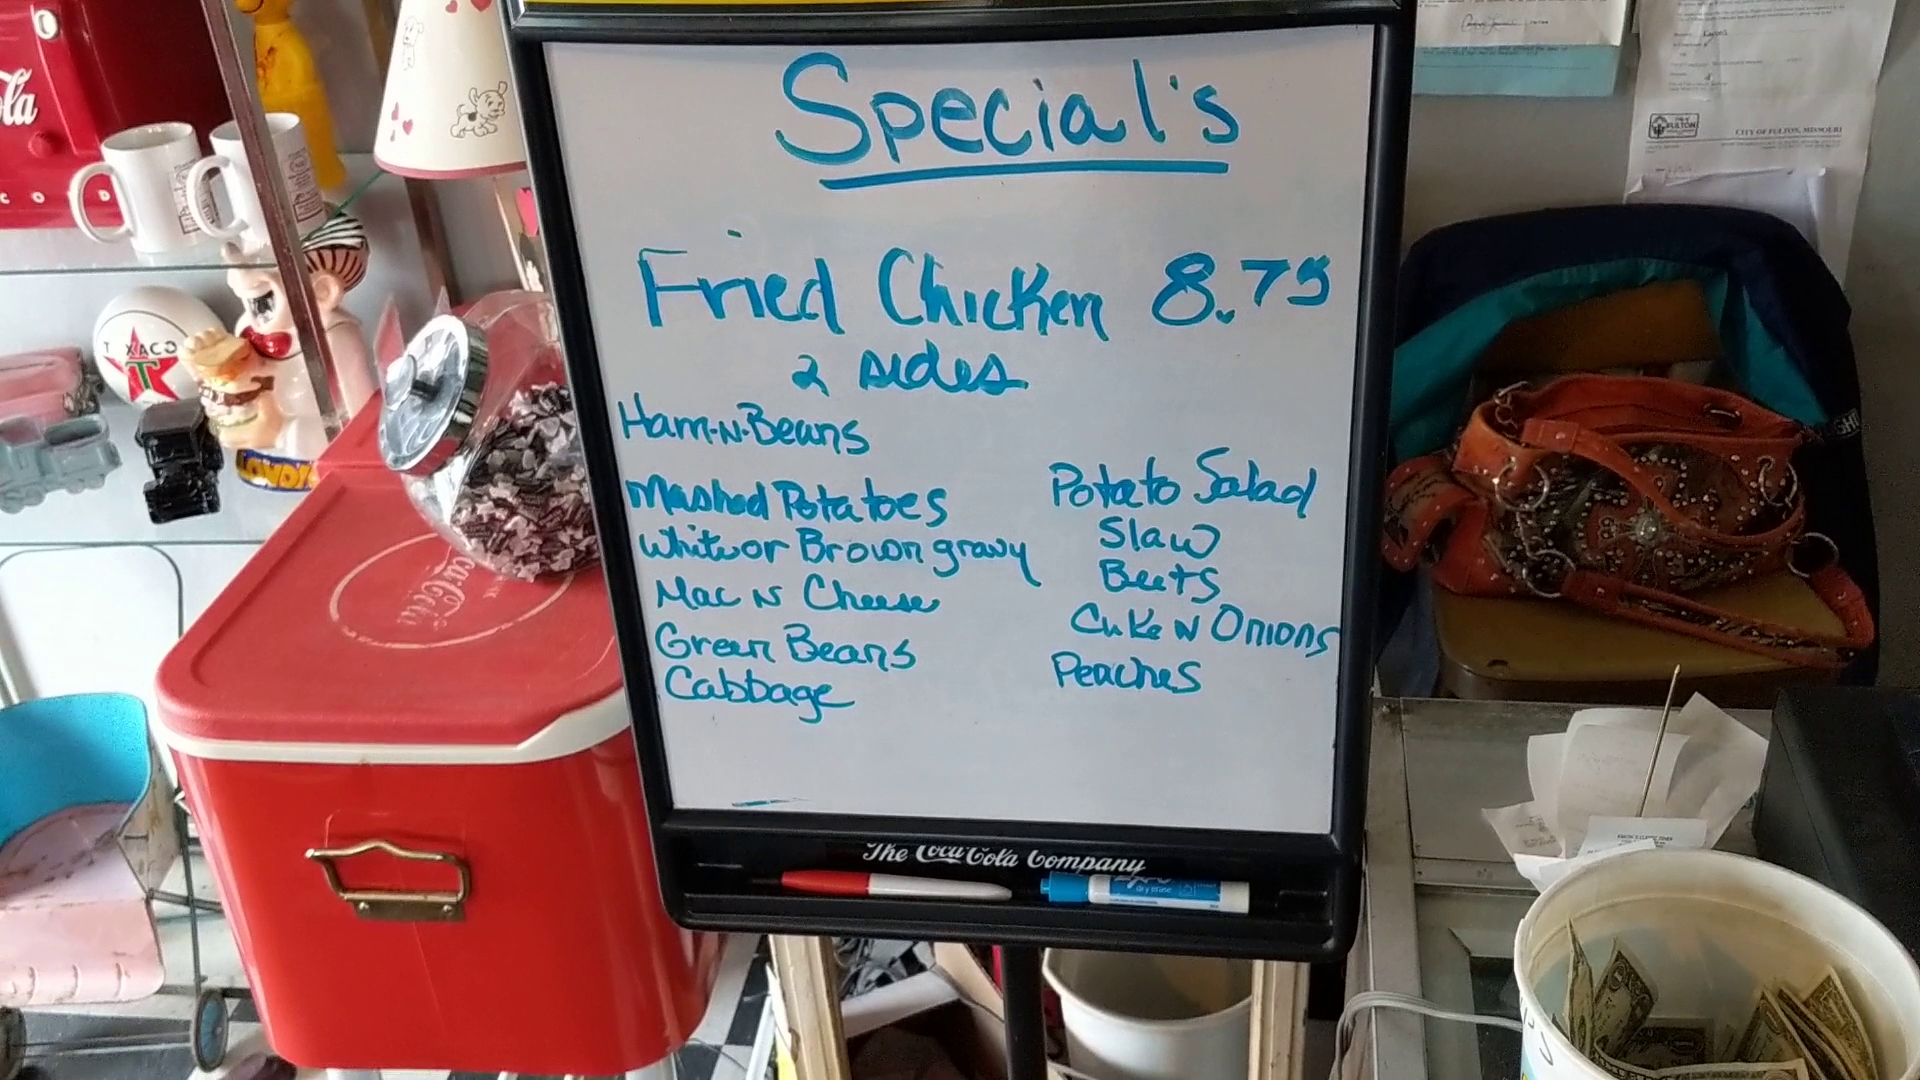 Special's
Fried Chicken 8.75
2 sides
Ham-N-Beans
Mashed Potatoes
White or Brown gravy
Mac N Cheese
Green Beans
Cabbage
Potato Salad
Slaw
Beets
Cuke N Onions
Peaches
The Coca-Cola Company
dry erase
Coca-Cola
TEXACO
T
CITY OF FULTON, MISSOURI
FULTON